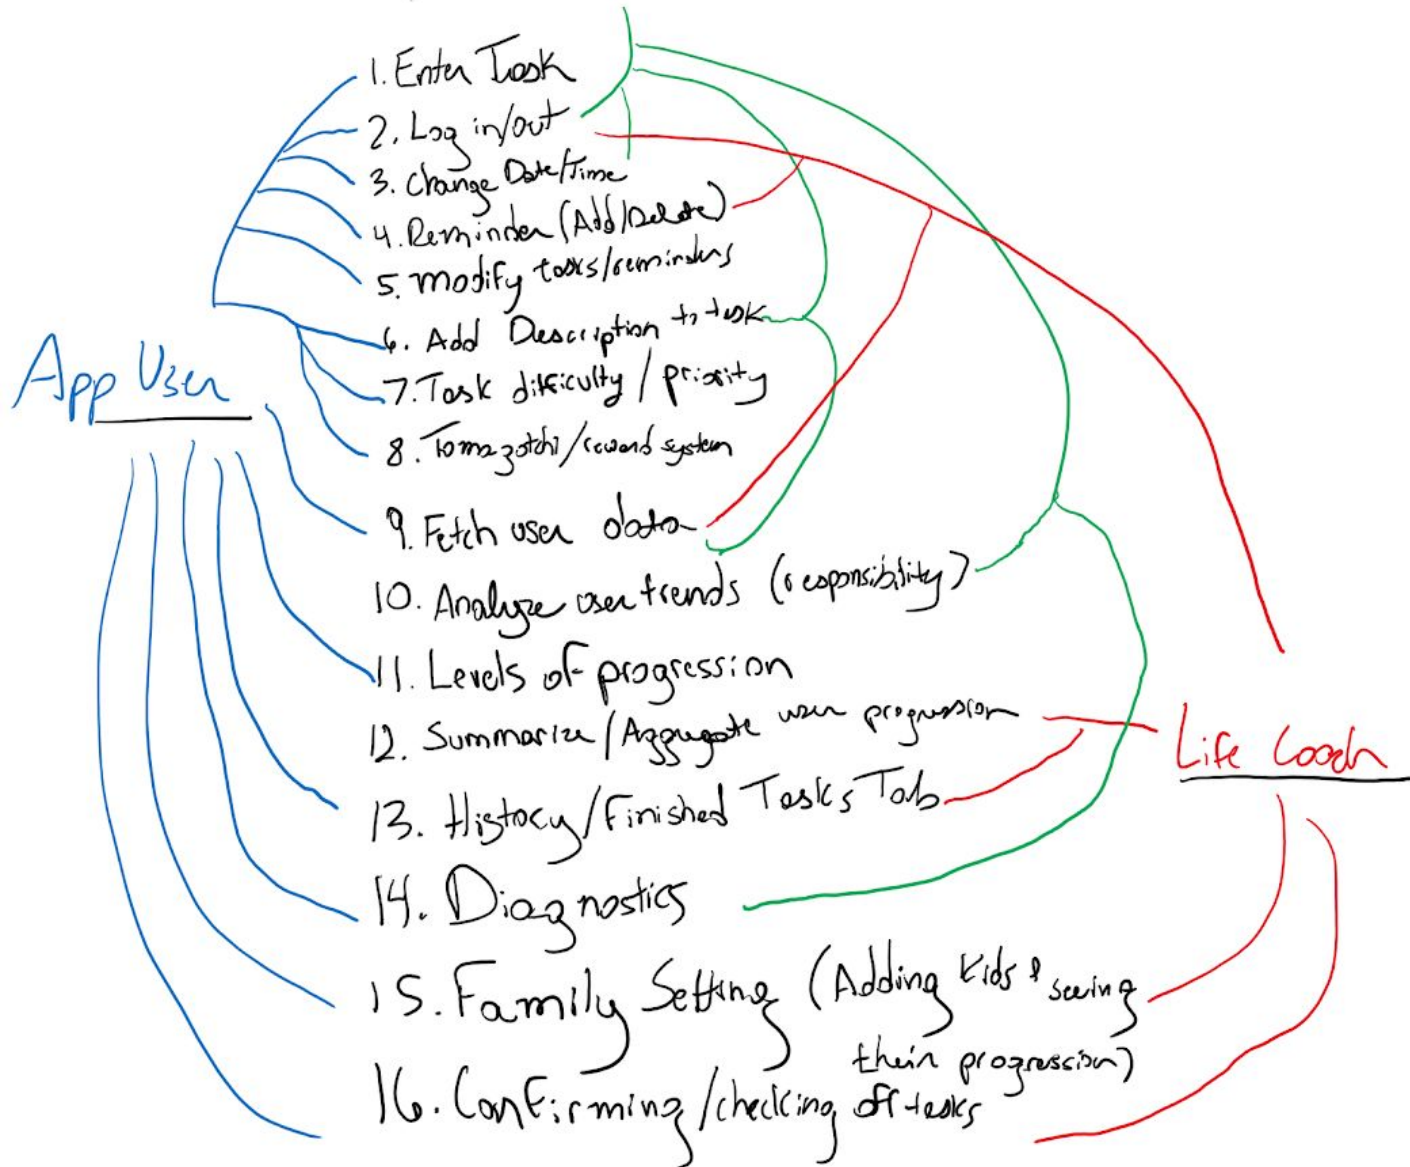 1. Enter Task
2. Log in/out
3. Change Date/Time
4. Reminder (Add/Delete)
5. Modify tasks/reminders
6. Add Description to task
App User
7. Task difficulty / priority
8. Tomagotchi/reward system
9. Fetch user data
10. Analyze user trends (responsibility)
11. Levels of progression
12. Summarize/Aggregate user progression
Life Coach
13. History/Finished Tasks Tab
14. Diagnostics
15. Family Setting (Adding kids & seeing
their progression)
16. Confirming/checking off tasks